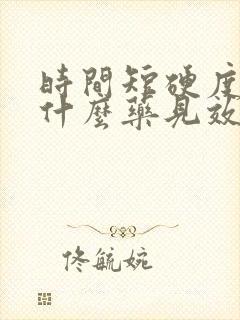 時間短硬度
什麼藥見效
佟毓婉